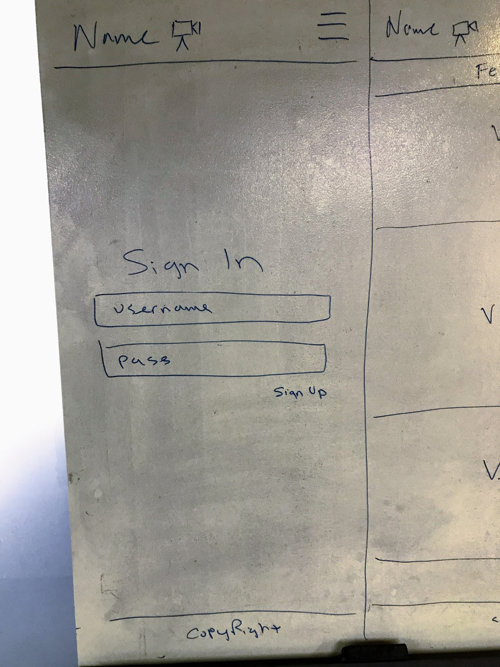 Name
Sign In
username
pass
Sign Up
copyRight
Name
Fe
V
V
V